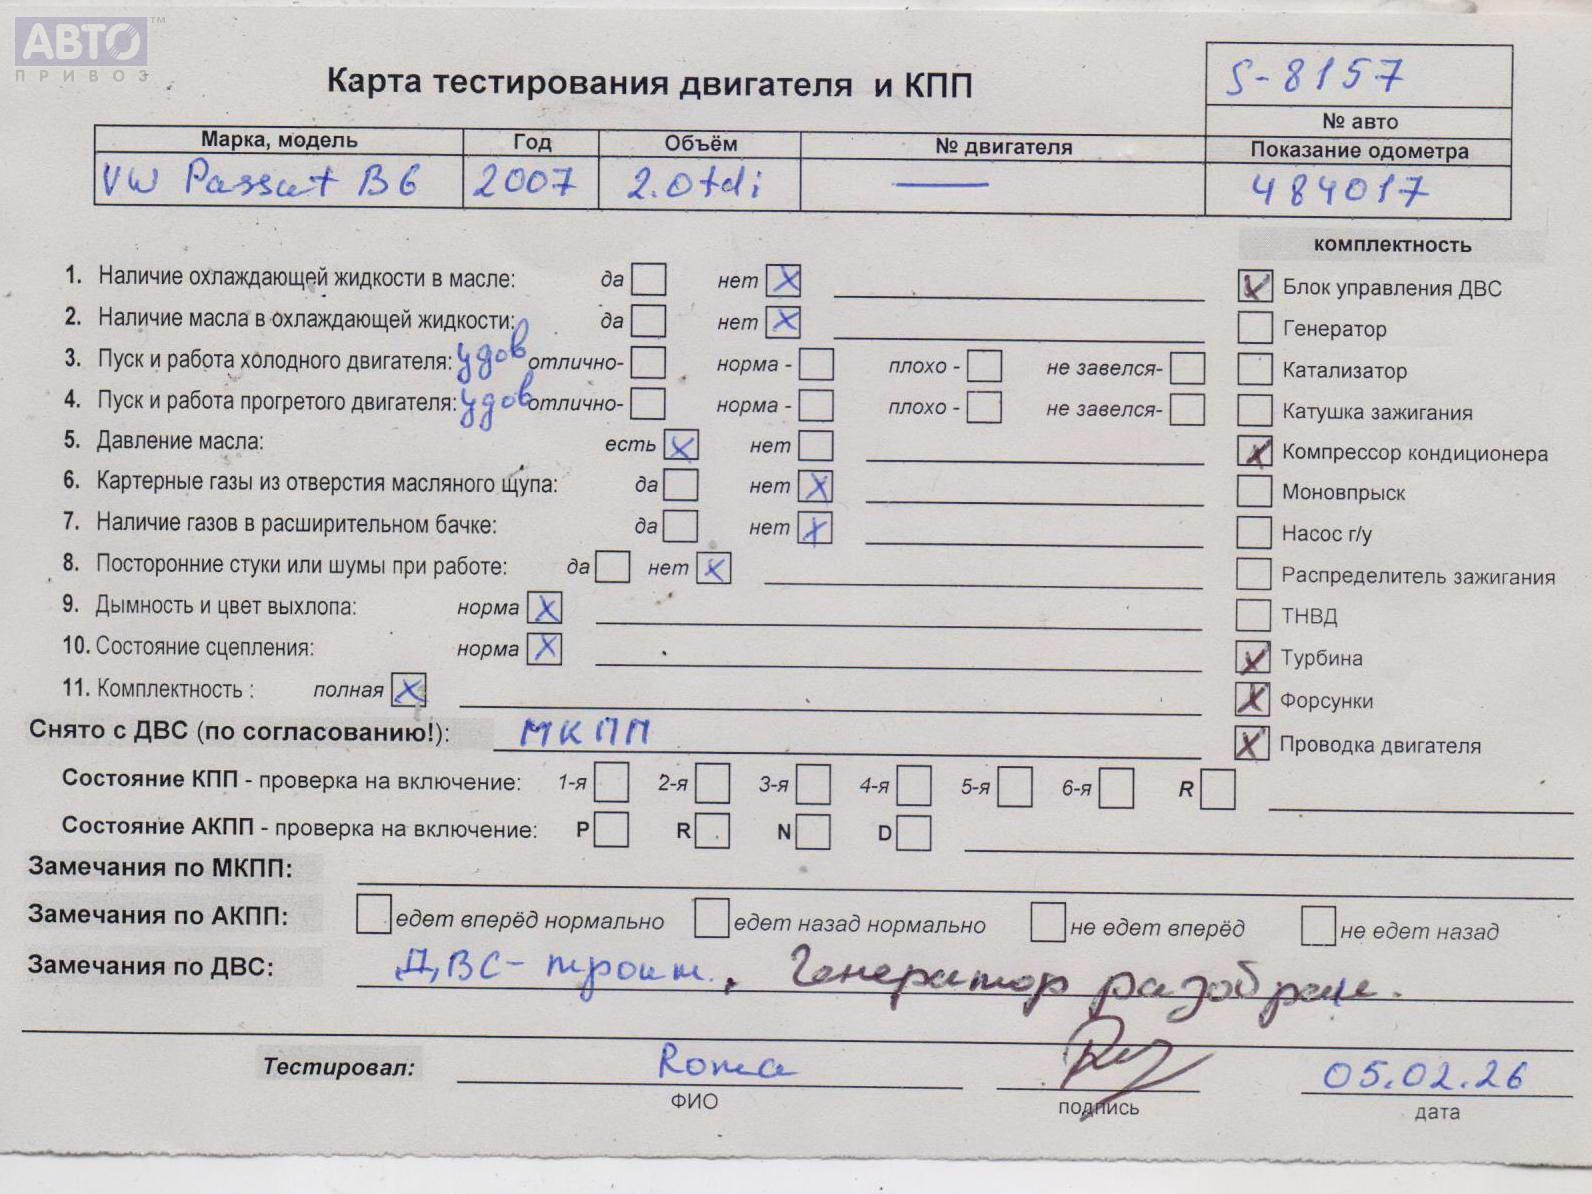 АВТО™
ПРИВОЗ
Карта тестирования двигателя и КПП
S-8157
№ авто
Марка, модель Год Объём № двигателя Показание одометра
VW Passat B6 2007 2.0 tdi — 484017
комплектность
1. Наличие охлаждающей жидкости в масле: да нет X
Блок управления ДВС
2. Наличие масла в охлаждающей жидкости: да нет X
Генератор
3. Пуск и работа холодного двигателя: удов отлично- норма - плохо - не завелся-
Катализатор
4. Пуск и работа прогретого двигателя: удов отлично- норма - плохо - не завелся-
Катушка зажигания
5. Давление масла: есть X нет
Компрессор кондиционера
6. Картерные газы из отверстия масляного щупа: да нет X
Моновпрыск
7. Наличие газов в расширительном бачке: да нет X
Насос г/у
8. Посторонние стуки или шумы при работе: да нет X
Распределитель зажигания
9. Дымность и цвет выхлопа: норма X
ТНВД
10. Состояние сцепления: норма X
Турбина
11. Комплектность : полная X
Форсунки
Снято с ДВС (по согласованию!): МКПП
Проводка двигателя
Состояние КПП - проверка на включение: 1-я 2-я 3-я 4-я 5-я 6-я R
Состояние АКПП - проверка на включение: P R N D
Замечания по МКПП:
Замечания по АКПП: едет вперёд нормально едет назад нормально не едет вперёд не едет назад
Замечания по ДВС: ДВС - троит. Генератор разобран.
Тестировал: Roma 05.02.26
ФИО подпись дата